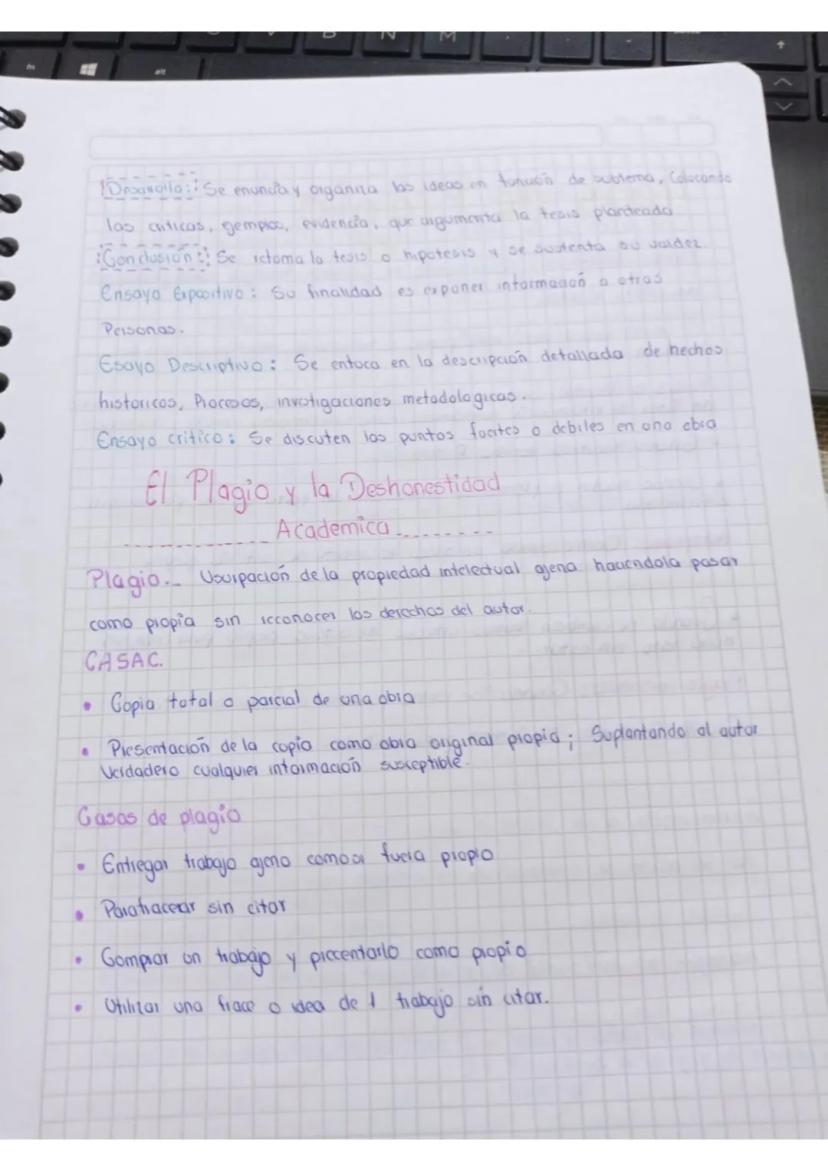 Desarrollo: Se enuncia y organiza las ideas en función de subtema, Colocando
las criticas, ejemplos, evidencia, que argumenta la tesis planteada
Conclusión: Se retoma la tesis o hipotesis y se sustenta su validez.
Ensayo Expositivo: Su finalidad es exponer información a otras
Personas.
Esayo Descriptivo: Se enfoca en la descripción detallada de hechos
historicos, Procesos, investigaciones metodologicas.
Ensayo critico: Se discuten los puntos fuertes o debiles en una obra
El Plagio y la Deshonestidad
Academica
Plagio.- Usurpación de la propiedad intelectual ajena haciendola pasar
como propia sin reconocer los derechos del autor.
CASAC.
• Copia total o parcial de una obra
• Presentación de la copia como obra original propia; Suplantando al autor
verdadero cualquier información susceptible.
Casos de plagio
• Entregar trabajo ajeno como si fuera propio
• Parafracear sin citar
• Comprar un trabajo y presentarlo como propio
• Utilizar una frace o idea de 1 trabajo sin citar.